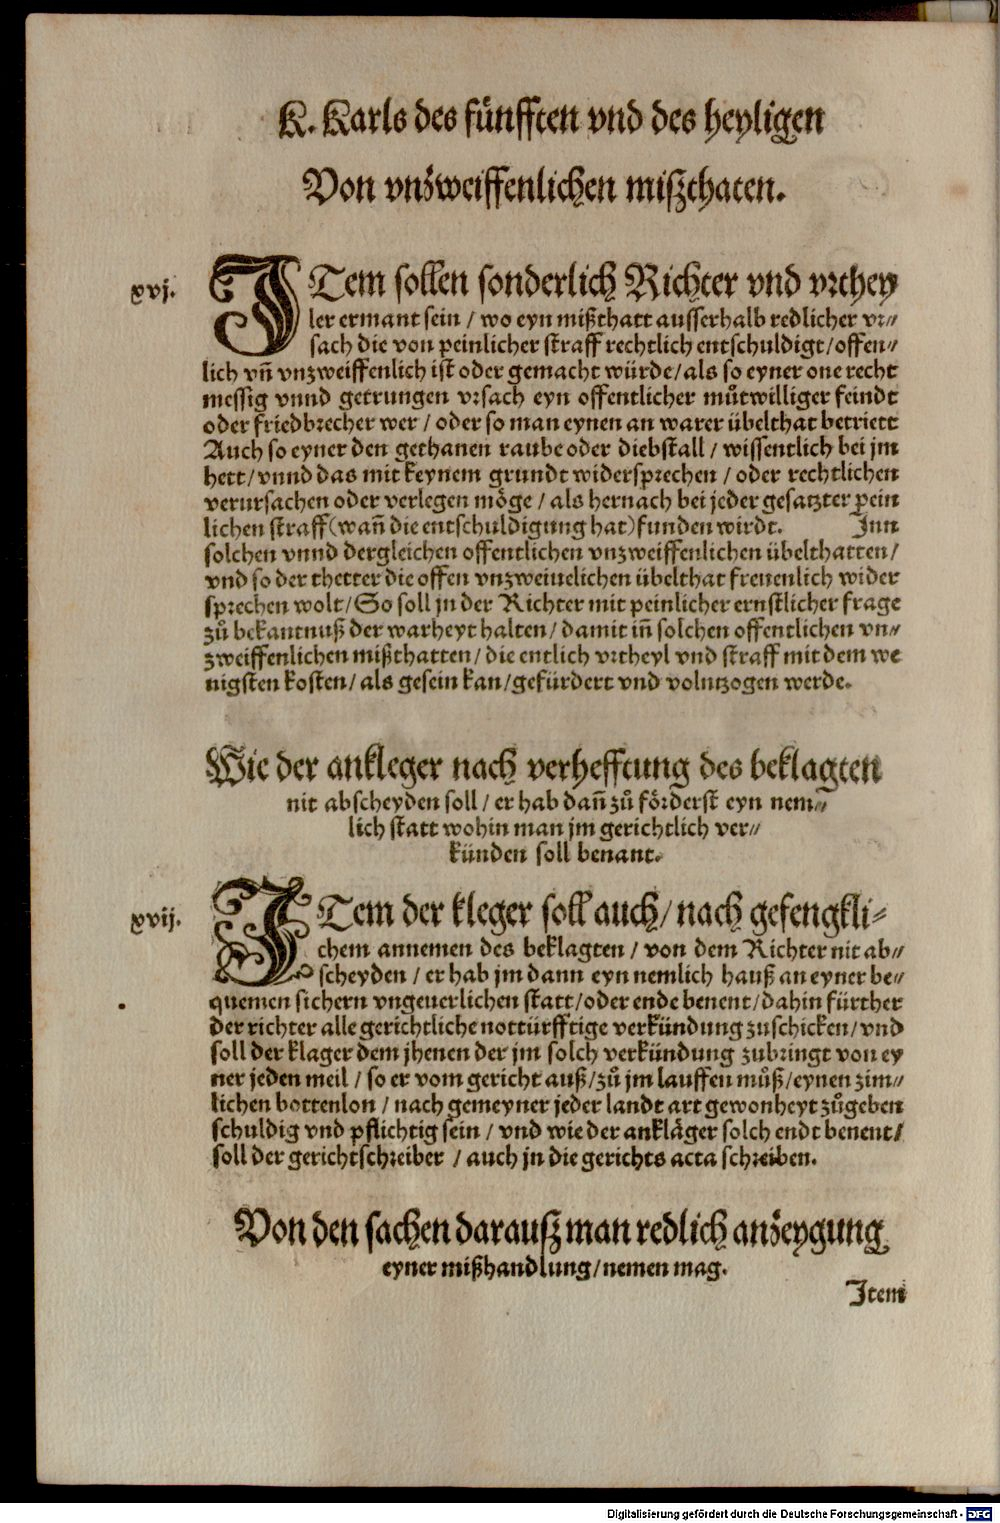 K. Karls des fünfften vnd des heyligen
Von vnzweiffenlichen miszthaten.
xvj.
ITem sollen sonderlich Richter vnd vrthey
ler ermant sein / wo eyn mißthatt ausserhalb redlicher vr⸗
sach die von peinlicher straff rechtlich entschuldigt / offen⸗
lich vñ vnzweiffenlich ist oder gemacht würde / als so eyner one recht
messig vnnd getrungen vrsach eyn offentlicher můtwilliger feindt
oder friedbrecher wer / oder so man eynen an warer übelthat betriett
Auch so eyner den gethanen raube oder diebstall / wissentlich bei jm
hett / vnnd das mit keynem grundt widersprechen / oder rechtlichen
verursachen oder verlegen möge / als hernach bei jeder gesatzter pein
lichen straff (wañ die entschuldigung hat) funden wirdt. Inn
solchen vnnd dergleichen offentlichen vnzweiffenlichen übelthatten /
vnd so der thetter die offen vnzweiuelichen übelthat freuenlich wider
sprechen wolt / So soll jn der Richter mit peinlicher ernstlicher frage
zů bekantnuß der warheyt halten / damit iñ solchen offentlichen vn⸗
zweiffenlichen mißthatten / die entlich vrtheyl vnd straff mit dem we
nigsten kosten / als gesein kan / gefürdert vnd volntzogen werde.
Wie der ankleger nach verhefftung des beklagten
nit abscheyden soll / er hab dañ zů förderst eyn nem⸗
lich statt wohin man jm gerichtlich ver⸗
künden soll benant.
xvij.
ITem der kleger soll auch / nach gefengkli⸗
chem annemen des beklagten / von dem Richter nit ab⸗
scheyden / er hab jm dann eyn nemlich hauß an eyner be⸗
quemen sichern vngeuerlichen statt / oder ende benent / dahin fürther
der richter alle gerichtliche nottürfftige verkündung zuschicken / vnd
soll der klager dem jhenen der jm solch verkündung zubringt von ey
ner jeden meil / so er vom gericht auß / zů jm lauffen můß / eynen zim⸗
lichen bottenlon / nach gemeyner jeder landt art gewonheyt zůgeben
schuldig vnd pflichtig sein / vnd wie der ankläger solch endt benent /
soll der gerichtschreiber / auch jn die gerichts acta schreiben.
Von den sachen darausz man redlich anzeygung
eyner mißhandlung / nemen mag.
Item
Digitalisierung gefördert durch die Deutsche Forschungsgemeinschaft - DFG